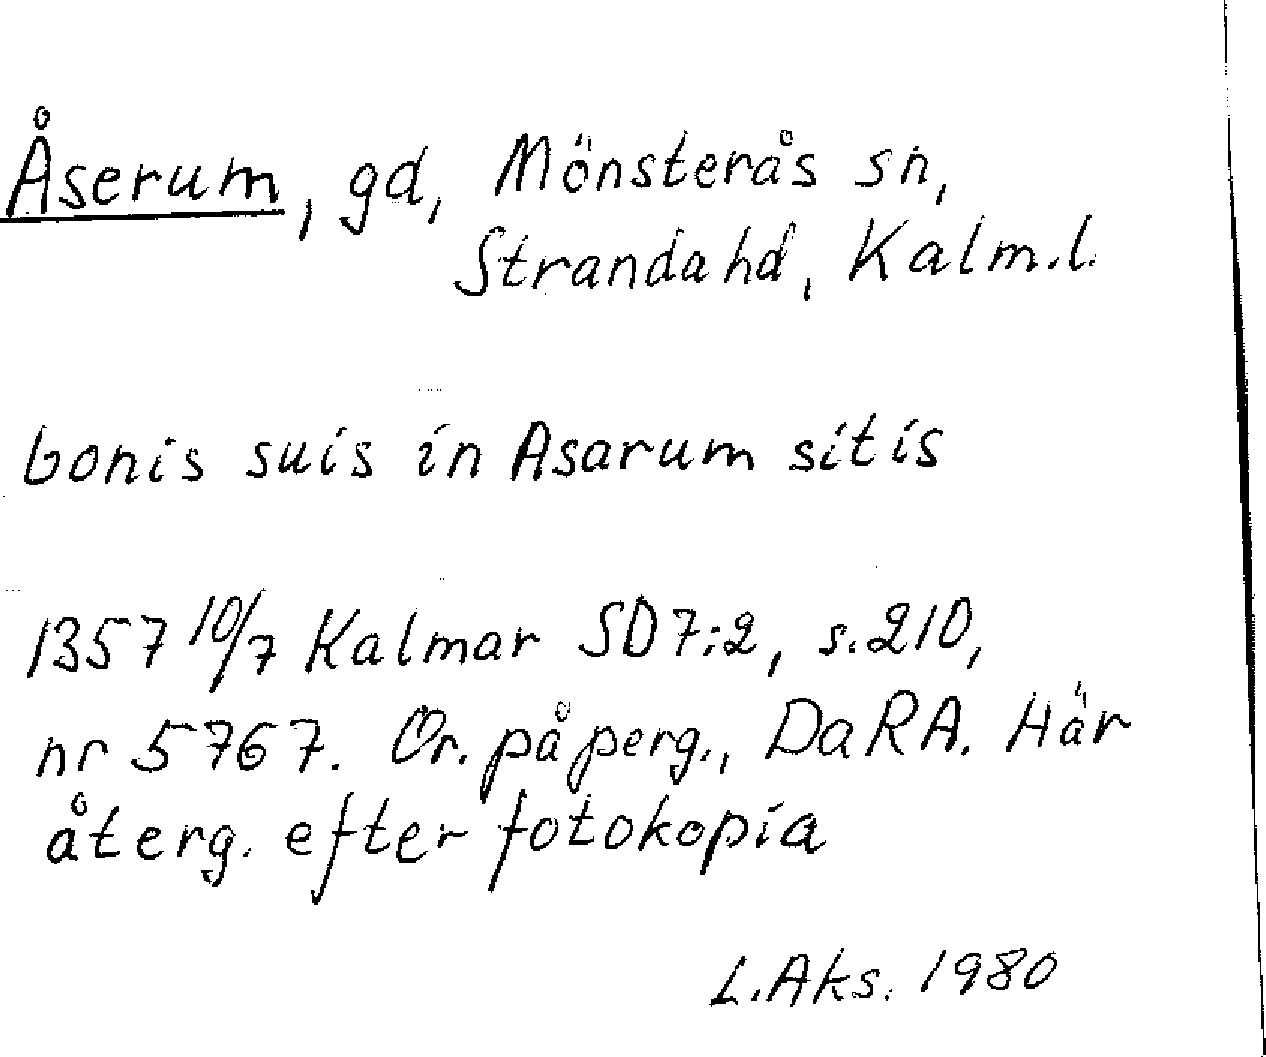 Åserum, gd, Mönsterås sn,
Stranda hd, Kalm.l.
bonis suis in Asarum sitis
1357 10/7 Kalmar SD 7:2, s. 210,
nr 5767. Or. på perg., DaRA. Här
återg. efter fotokopia
L. Aks. 1980